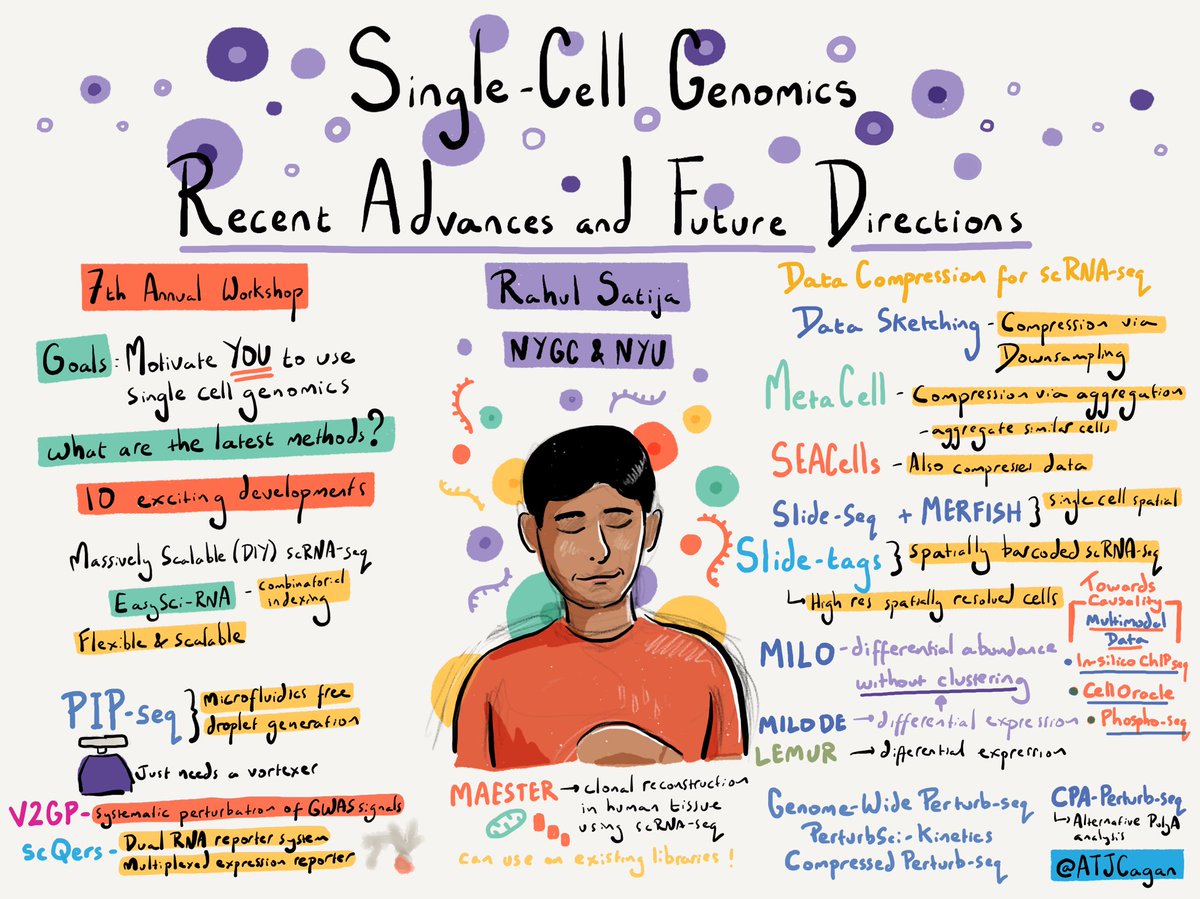 Single-Cell Genomics
Recent Advances and Future Directions
7th Annual Workshop
Goals: Motivate YOU to use
single cell genomics
what are the latest methods?
10 exciting developments
Massively Scalable (DIY) scRNA-seq
EasySci-RNA - combinatorial
indexing
Flexible & scalable
PIP-seq } Microfluidics free
droplet generation
Just needs a vortexer
V2GP - systematic perturbation of GWAS signals
scQers - Dual RNA reporter system
Multiplexed expression reporter
Rahul Satija
NYGC & NYU
MAESTER → clonal reconstruction
in human tissue
using scRNA-seq
can use on existing libraries!
Data Compression for scRNA-seq
Data Sketching - Compression via
Downsampling
MetaCell - Compression via aggregation
- aggregate similar cells
SEACells - Also compresses data
Slide-Seq + MERFISH } single cell spatial
Slide-tags } spatially barcoded scRNA-seq
↳ High res spatially resolved cells
MILO - differential abundance
without clustering
MILO DE → differential expression
LEMUR → differential expression
Towards
Causality
Multimodal
Data
• In-silico ChIP seq
• CellOracle
• Phospho-seq
Genome-Wide Perturb-seq
PerturbSci-Kinetics
Compressed Perturb-seq
CPA-Perturb-seq
↳ Alternative PolyA
analysis
@ATJCagan